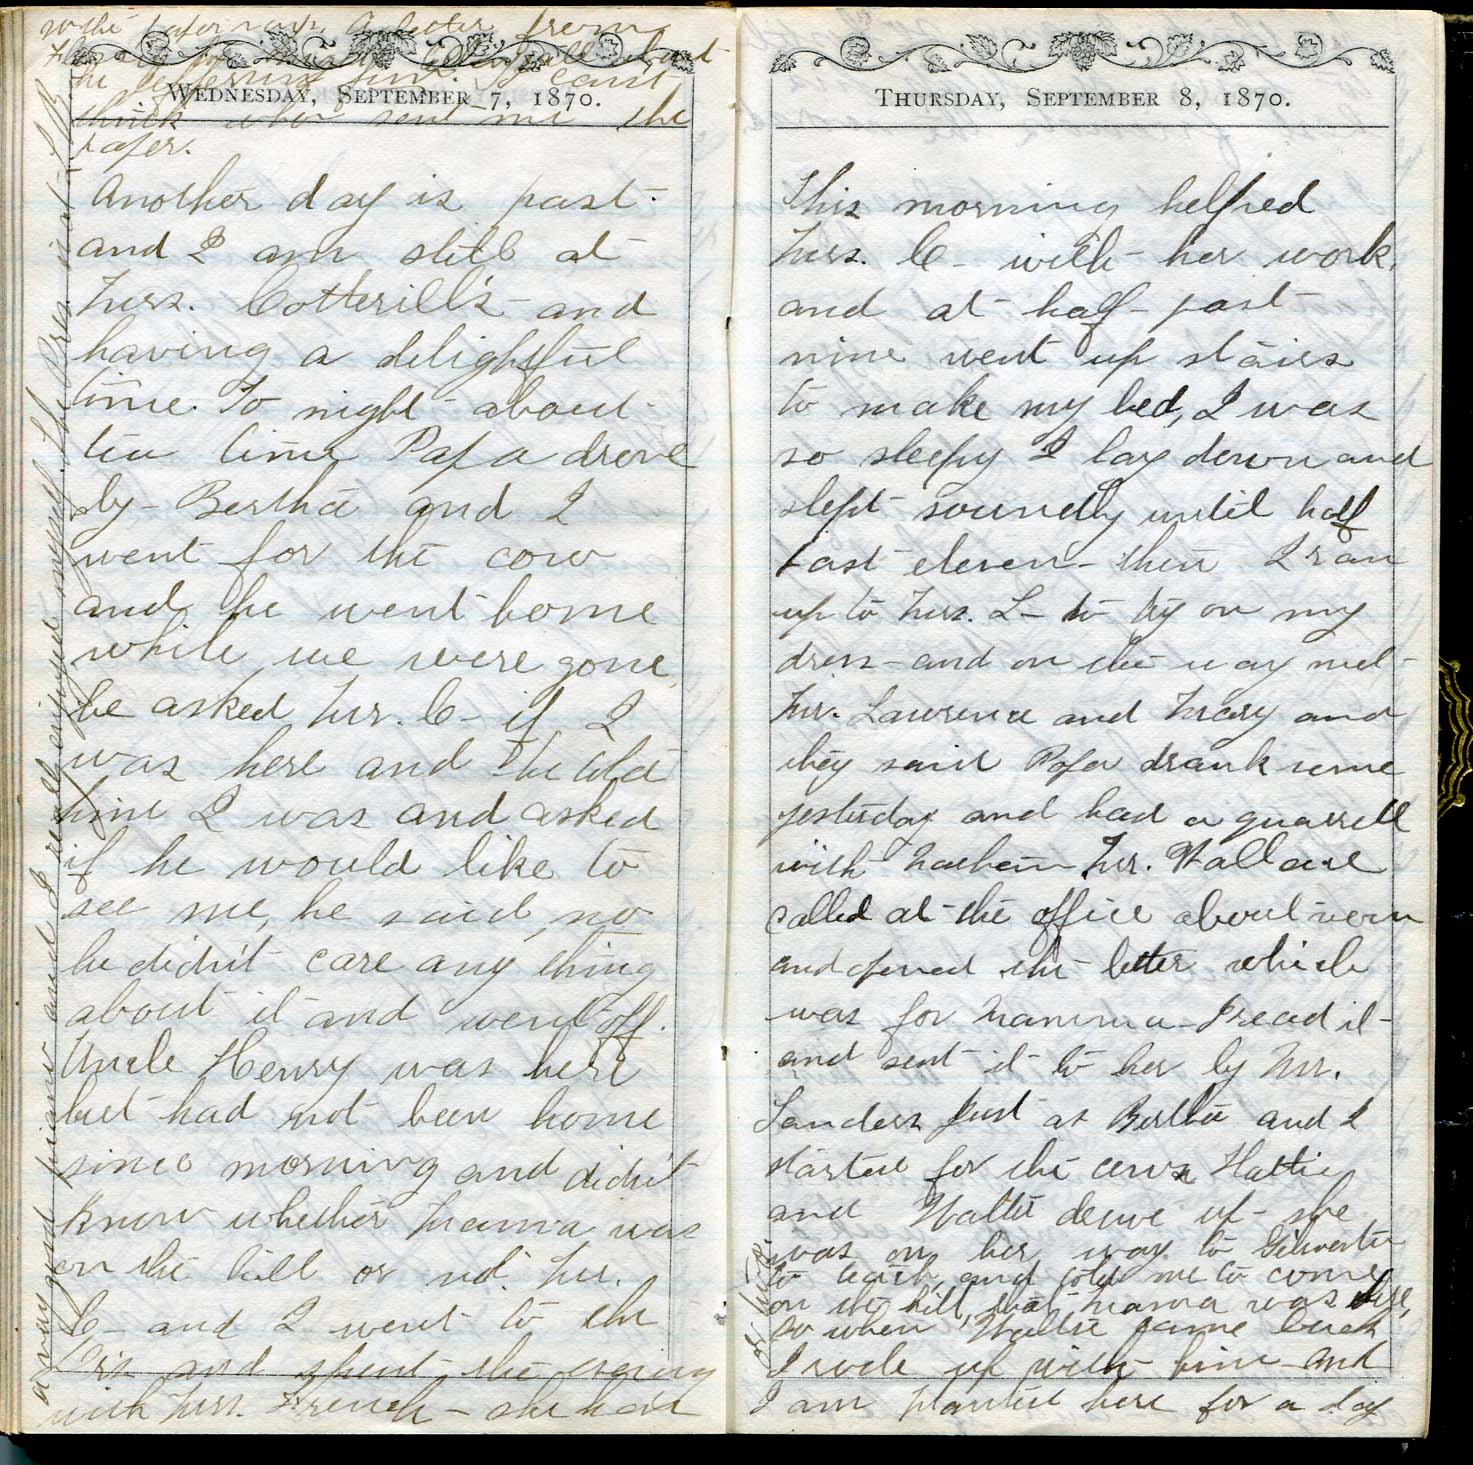 in the paper was a letter from
the
think who sent me the
paper.
WEDNESDAY, SEPTEMBER 7, 1870.
Another day is past-
and I am still at
Mrs. Cotterill's - and
having a delightful
time. To night about
tea time Papa drove
by - Bertha and I
went for the cow
and he went home
while we were gone
he asked Mr. C - if I
was here and he told
him I was and asked
if he would like to
see me, he said no
he didn't care any thing
about it and went off.
Uncle Henry was here
but had not been home
since morning and didn't
know whether Mama was
on the hill or not. Mr.
C - and I went to the
and spent the evening
with Mrs. French - she has a
a very good piano and I really enjoyed myself. The
THURSDAY, SEPTEMBER 8, 1870.
This morning helped
Mrs. C - with her work,
and at half-past
nine went up stairs
to make my bed, I was
so sleepy I lay down and
slept soundly until half
past eleven - then I ran
up to Mrs. L - to try on my
dress - and on the way met
Mr. Lawrence and Mary and
they said Papa drank some
yesterday and had a quarrell
with Mr. Wallace
called at the office about noon
and opened the letter which
was for Mamma - I read it -
and sent it to her by Mr.
Sanders just as Bertha and I
started for the cows Hattie
and Walter drove up - she
was on her way to
to teach, and told me to come
on the hill, that Mama was here,
so when Walter came back
I rode up with him and
I am planted here for a day
or two.